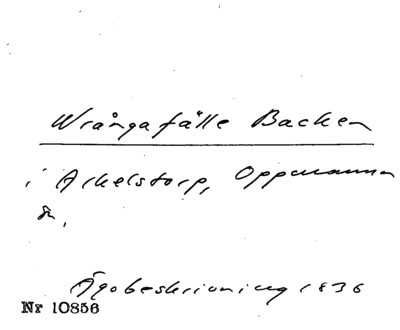 Wrångafälle Backen
i Arkelstorp, Oppmanna
sn.
Ägobeskrivning 1836
Nr 10856